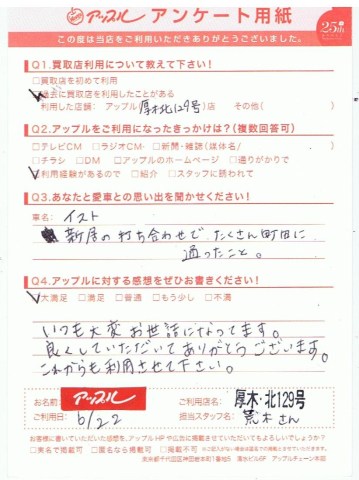 アップル アンケート用紙 25th
この度は当店をご利用いただきありがとうございました。
Q1.買取店利用について教えて下さい!
□買取店を初めて利用
□過去に買取店を利用したことがある
利用した店舗: アップル( 厚木北129号 )店 その他( )
Q2.アップルをご利用になったきっかけは?(複数回答可)
□テレビCM □ラジオCM □新聞・雑誌(媒体名/ )
□チラシ □DM □アップルのホームページ □通りがかりで
□利用経験があるので □紹介 □スタッフに誘われて
Q3.あなたと愛車との思い出を聞かせください!
車名: イスト
新居の打ち合わせで、たくさん町田に
通ったこと。
Q4.アップルに対する感想をぜひお書きください!
□大満足 □満足 □普通 □もう少し □不満
いつも大変お世話になってます。
良くしていただいてありがとうございます。
これからも利用させて下さい。
お名前: アップル ご利用店名: 厚木・北129号
ご利用日: 6/22 担当スタッフ名: 荒木さん
お客様に書いていただいた感想を、アップルHPや広告に掲載させていただいてもよろしいでしょうか?
□実名で掲載可 □匿名なら掲載可 □掲載不可